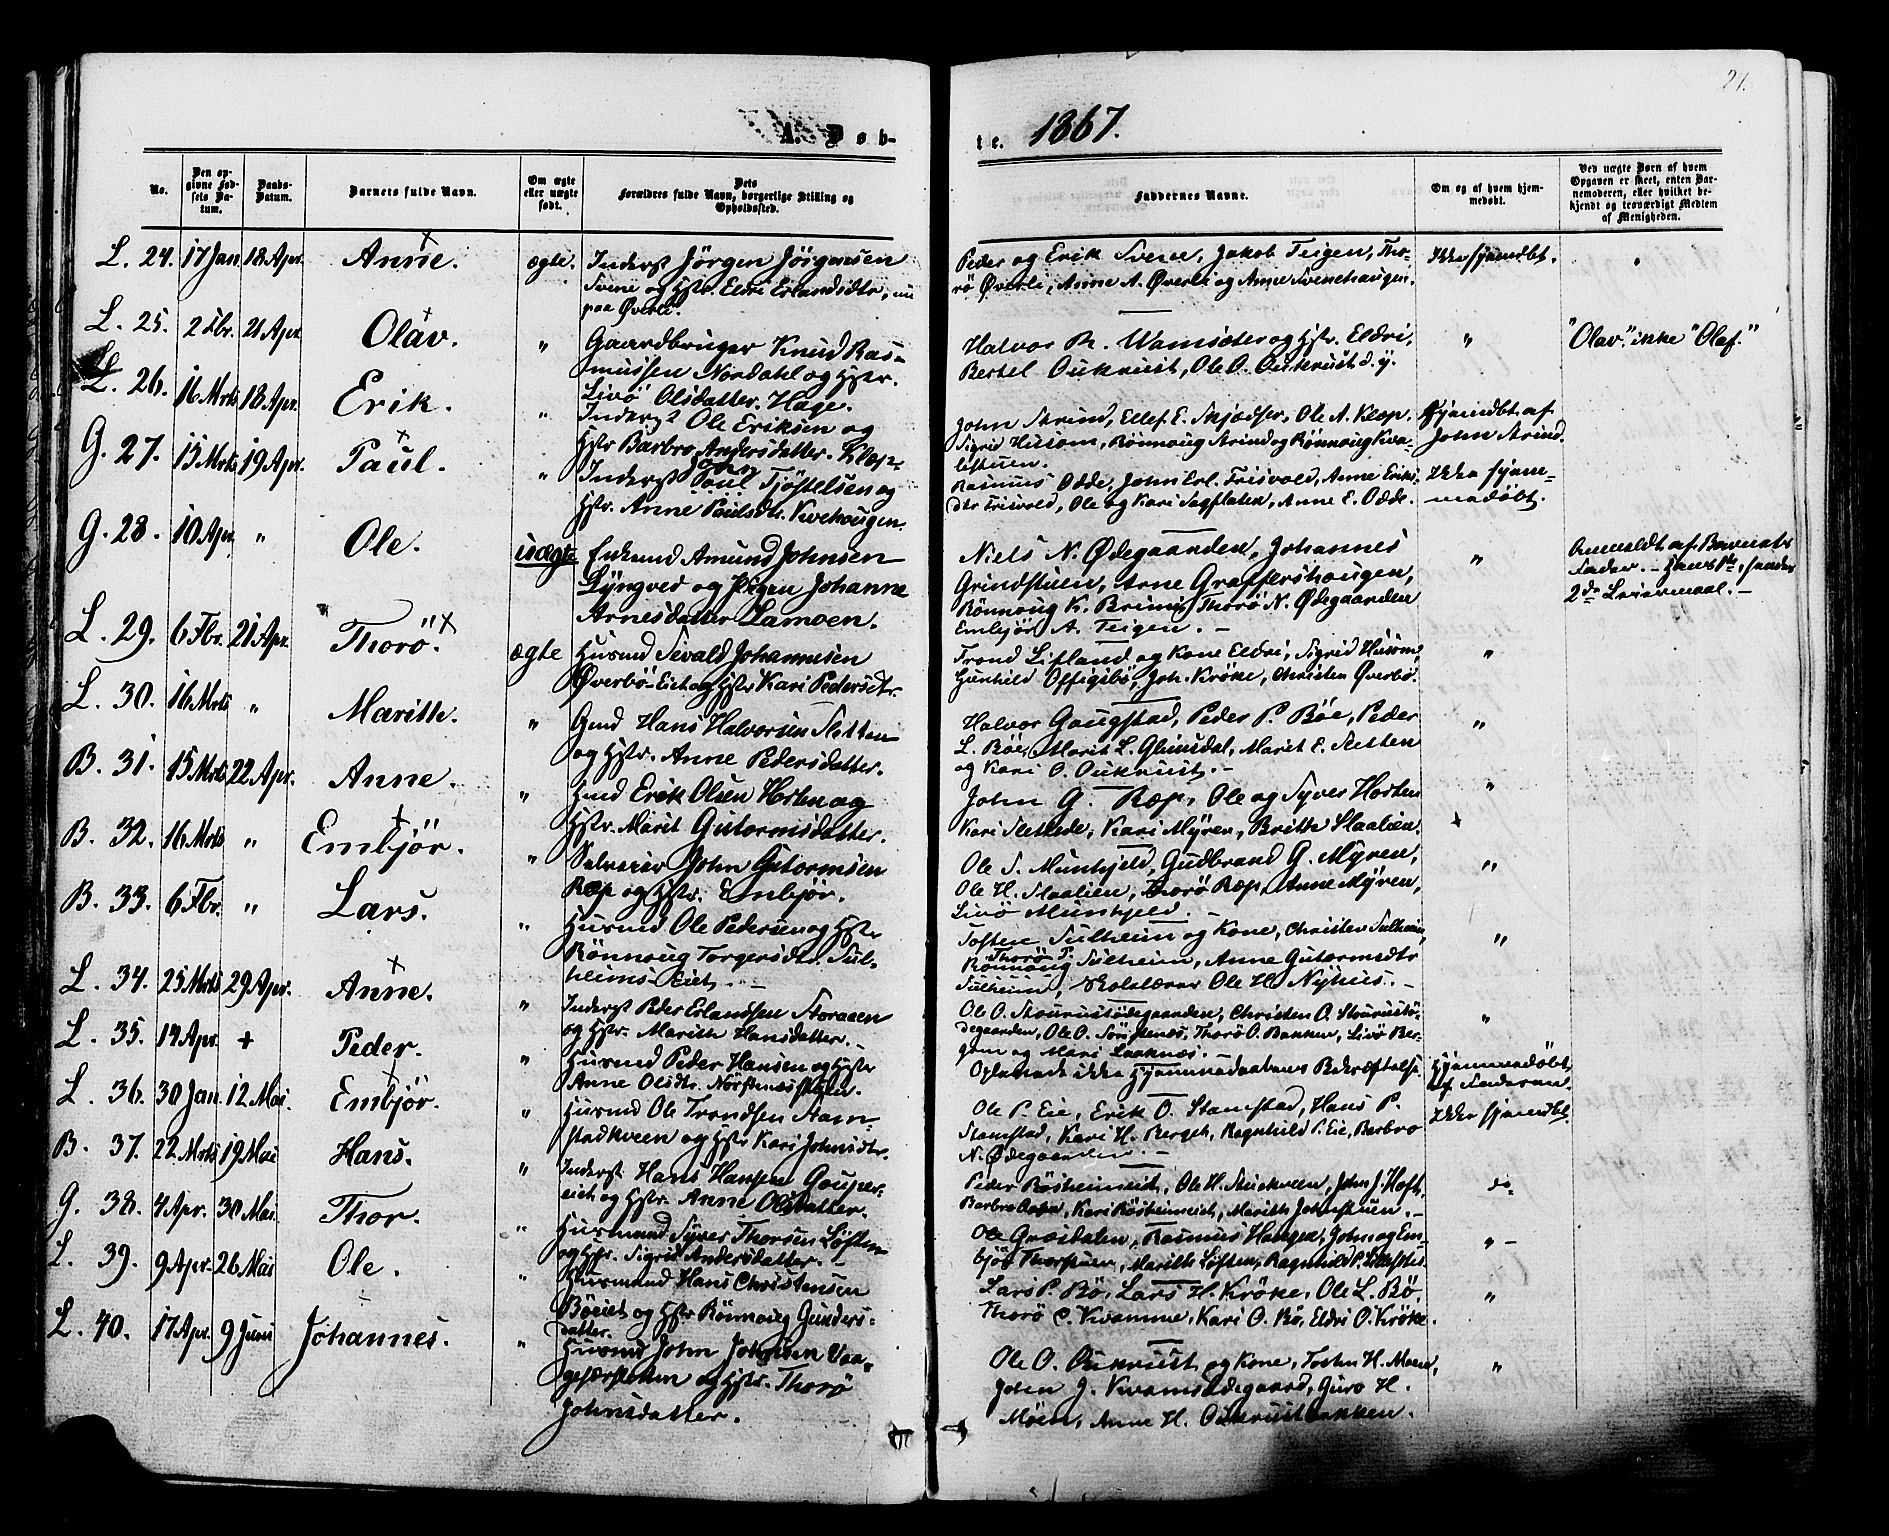 21.
A. Døb-
te. 1867.
No.
Den op-
givne Fød-
sels Da-
tum.
Daabs-
Datum.
Barnets fulde Navn.
Om ægte
eller uægte
født.
Dets
Forældres fulde Navn, borgerlige Stilling og
Opholdssted.
Faddernes Navne.
Om og af hvem hjem-
medøbt.
Ved uægte Børn af hvem
Opgaven er skeet, enten Bar-
nemoderen, eller hvilket be-
kjendt og troværdigt Medlem
af Menigheden.
L. 24. 17 Jan 18 Apr. Anne. ægte. Inderst Jörgen Jörgensen
Svene og Hstr. Eldri Erlandsdtr, nu
paa Øverli.
Peder og Erik Svene, Jakob Teigen, Tho-
rö Øverli, Anne A. Øverli og Anne Svenehaugen.
Ikke hjemdbt.
L. 25. 2 Fbr. 21 Apr. Olav. " Gaardbruger Knud Ras-
mussen Nordahl og Hstr.
Livö Olsdatter. Hage.
Halvor R. Wamsæter og Hstr. Eldri,
Bertel Oukrust, Ole O. Oukrust d.y.
"
"Olav" ikke "Olaf."
L. 26. 16 Mrts 18 Apr. Erik. " Inderst Ole Eriksen og
Hstr Barbro Andersdatter. Klæp.
John Strind, Ellef E. Skjædser, Ole A. Klæp.
Sigrid Husom, Rönnoug Strind og Rönnoug Kva-
leftuen.
Hjemdbt af
John Strind.
G. 27. 15 Mrts 19 Apr. Paul. " Inderst John Tjöstelsen og
Hstr. Anne Paulsdtr. Kvehougen.
Rasmus Odde, John Erl. Frisvold, Anne Eriks-
dtr Frisvold, Ole og Kari Sagflaten, Anne E. Odde.
Ikke hjem-
medöbt.
G. 28. 10 Apr. " Ole. uægte Enkemd Amund Johnsen
Lyngved og Pigen Johanne
Arnesdatter Lamoen.
Niels N. Ødegaarden, Johannes
Grindstuen, Arne Graffershougen,
Rönnoug K. Brimi, Thorö N. Ødegaarden
Embjör A. Teigen.
"
Anmeldt af Barnets
Fader. Hans , hendes
2det Leiermaal.
L. 29. 6 Fbr. 21 Apr. Thorö. ægte Husmd Sevald Johannesen
Øverbö-Eiet og Hstr Kari Pedersdtr.
Trond Lifland og Kone Eldri, Sigrid Husom,
Gunhild Offigsbö, Joh. Kröke, Christen Øverbö.
"
L. 30. 16 Mrts " Maritte. " Gmd Hans Halvorsen Sletten
og Hstr. Anne Pedersdatter.
Halvor Gaugstad, Peder P. Böe, Peder
L. Böe, Marit L. Glimsdal, Marit E. Sletten
og Kari O. Oukrust.
"
B. 31. 15 Mrts 22 Apr. Anne. " Hmd Erik Olsen Horten og
Hstr. Marit Gutormsdatter.
John G. Ræp, Ole og Syver Horten
Kari Slethede, Kari Myren, Britte Slaalien.
"
B. 32. 16 Mrts " Embjör. " Selveier John Gutormsen
Ræp og Hstr. Embjör.
Ole S. Munkjeld, Gudbrand G. Myren,
Ole H. Slaalien, Thorö Ræp, Anne Myren,
Livö Munkjeld.
"
B. 33. 6 Fbr. " Lars. " Husmd Ole Pedersen og Hstr
Rönnoug Torgersdtr. Sul-
heims-Eiet.
Tosten Sulheim og Kone, Christen Sulheim,
Rönnoug Thorö P. Sulheim, Anne Gutormsdtr
Sulheim, Skolelærer Ole H. Nyhus.
"
L. 34. 25 Mrts 29 Apr. Anne. " Inderst Peder Erlandsen Storaaen
og Hstr. Maritte Hansdatter.
Ole O. Stourustödegaarden, Christen O. Stourustö-
degaarden, Ole O. Sörstenæs, Thorö O. Bakken, Livö Ber-
gom og Mari Laaknæs.
"
L. 35. 14 Apr. + Peder. " Husmd Peder Hansen og Hstr
Anne Olsdtr. Nörstenæs
Oplevede ikke Hjemmedaabens Bekræftelse.
Hjemmedöbt
af Faderen.
L. 36. 30 Jan. 12 Mai. Embjör. " Husmd Ole Trondsen Stam-
stadkveen og Hstr Kari Johnsdtr.
Ole P. Eie, Erik O. Stamstad, Hans P.
Stamstad, Kari H. Berget, Ragnhild P. Eie, Barbro
N. Ødegaarden.
Ikke hjemdbt.
B. 37. 22 Mrts 19 Mai Hans. " Inderst Hans Hansen Gouper-
eiet og Hstr. Anne Olsdatter.
Peder Rösheimeiet, Ole H. Stuekveen, John J. Hoft,
Barbro , Kari Rösheimeiet, Marith Johnstuen.
do
G. 38. 4 Apr. 30 Mai. Thor. " Husmand Syver Thorsen Löften
og Hstr. Sigrid Andersdatter.
Ole Græsdalen, Rasmus Haugen, John og Em-
björ Thorstuen, Marith Löften, Ragnhild P.
"
L. 39. 9 Apr. 26 Mai Ole. " Husmand Hans Christensen
Böeiet og Hstr Rönnoug Gunders-
datter.
Lars P. Bö, Lars H. Kröke, Ole L. Bö,
Thorö C. Kvamme, Kari O. Bö, Eldri O. Kröke.
"
L. 40. 17 Apr. 9 Juni Johannes. " Husmd John Johnsen Vaa-
gesærsletten og Hstr. Thorö
Johnsdatter.
Ole O. Oukrust og Kone, Tosten H. Moene,
John J. Kvamsødegaard, Guro H.
Möen, Anne H. Oukrustbakken.
"